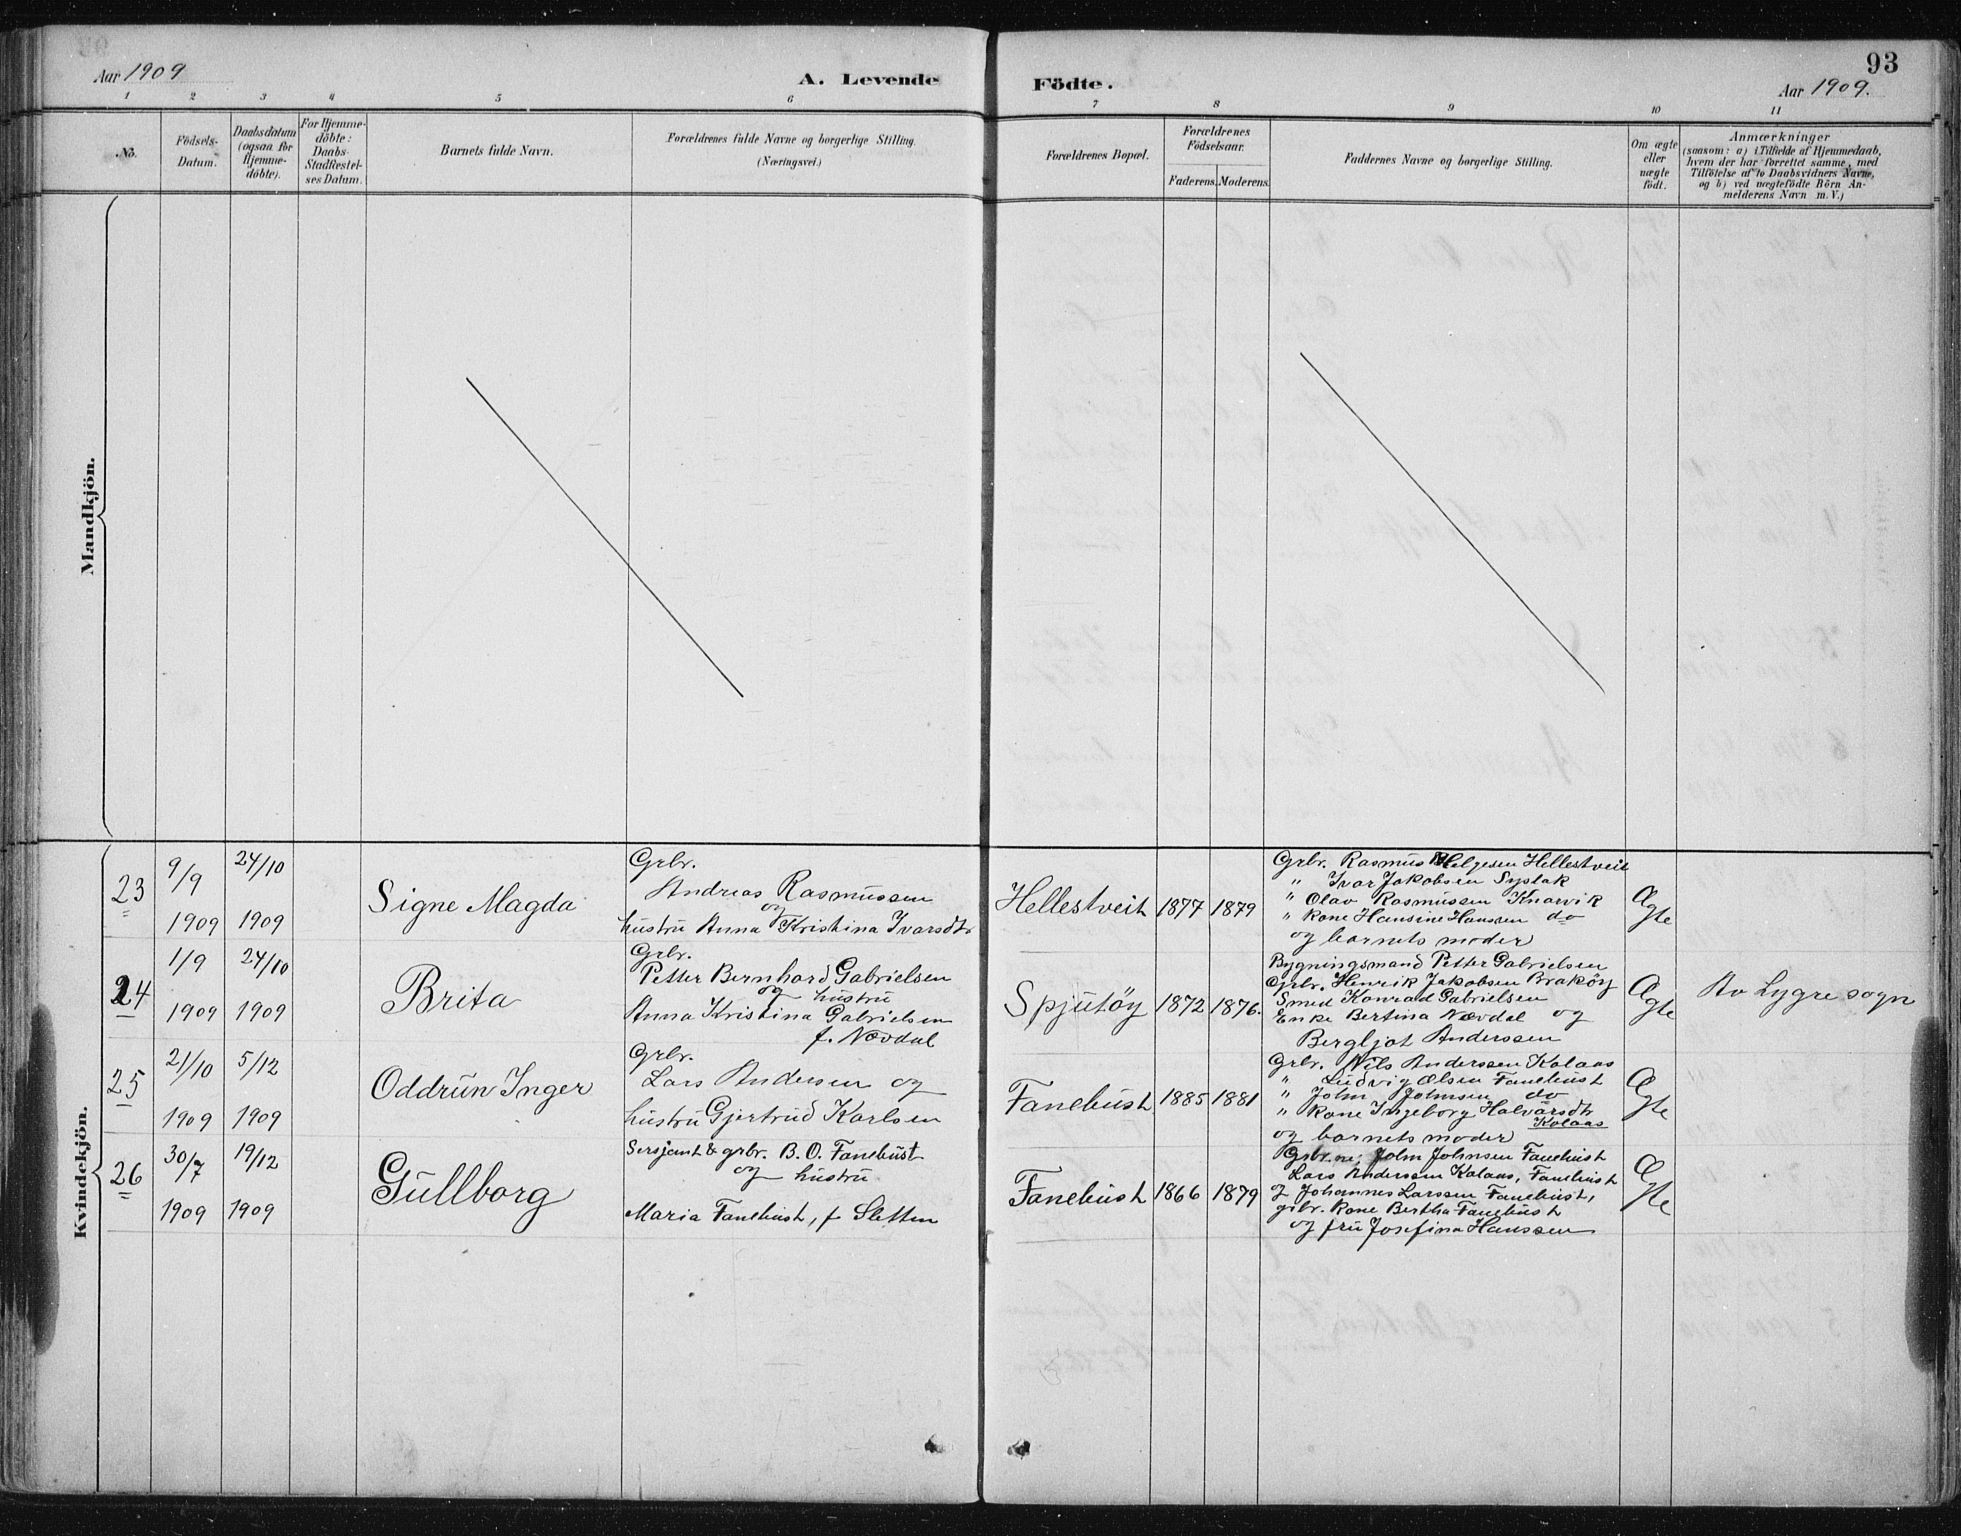 93
Aar 1909
A. Levende
Födte.
Aar 1909.
1 2 3 4 5 6 7 8 9 10 11
No.
Födsels-
Datum.
Daabsdatum
(ogsaa for
Hjemme-
döbte).
For Hjemme-
döbte:
Daabs-
Stadfæstel-
ses Datum.
Barnets fulde Navn.
Forældrenes fulde Navne og borgerlige Stilling.
(Næringsvei.)
Forældrenes Bopæl.
Forældrenes
Födselsaar.
Faderens. Moderens.
Faddernes Navne og borgerlige Stilling.
Om ægte
eller
uægte
födt.
Anmærkninger
(saasom: a) i Tilfælde af Hjemmedaab,
hvem der har forrettet samme, med
Tilföielse af to Daabsvidners Navne,
og b) ved uægtefödte Börn An-
melderens Navn m. V.)
Mandkjön.
Kvindekjön.
23
9/9
1909
24/10
1909
Signe Magda
Grbr.
Andreas Rasmussen
og
hustru Anna Kristina Ivarsdtr
Hellestveit
1877
1879
Grbr. Rasmus Helgesen Hellestveit
" Ivar Jakobsen Syslak
" Olav Rasmussen Knarvik
" Kone Hansine Hanssen do
og barnets moder
Ægte
24
1/9
1909
24/10
1909
Brita
Grbr.
Petter Bernhard Gabrielsen
og hustru
Anna Kristina Gabrielsen
f. Nævdal
Spjutöy
1872
1876.
Bygningsmand Petter Gabrielsen
Grbr. Henrik Jakobsen Braköy
Smed Konrad Gabrielsen
Enke Bertina Nævdal og
Bergljot Anderssen
Ægte
Av Lygre sogn
25
21/10
1909
5/12
1909
Oddrun Inger
Grbr.
Lars Andersen og
hustru Gjertrud Karlsen
Fanebust
1885
1881
Grbr. Nils Anderssen Kolaas
" Ludvig Olsen Fanebust
" John Johnsen do
" Kone Ingeborg Halvarsdtr
Kolaas
og barnets moder
Ægte
26
30/7
1909
19/12
1909
Gullborg
Sersjant & grbr. B. O. Fanebust
og hustru
Maria Fanebust, f. Sletten
Fanebust
1866
1879
Grbr.ne; John Johnsen Fanebust
Lars Anderssen Kolaas, Fanebust
og Johannes Larssen Fanebust,
grbr. Kone Bertha Fanebust
og fru Josefina Hanssen
Ægte